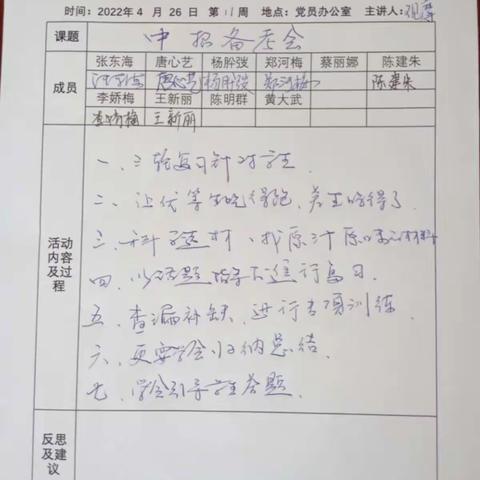 时间：2022年4月26日 第11周 地点：党员办公室 主讲人：
课题 中招备考会
成员
张东海 唐心艺 杨肸弢 郑河梅 蔡丽娜 陈建朱
唐心艺 杨肸弢 郑河梅 陈建朱
李娇梅 王新丽 陈明群 黄大武
李娇梅 王新丽
活动内容及过程
一、三轮复习针对学生
二、让优等生吃得饱，差生吃得了
三、科学选材，找原汁原味的材料
四、以话题 进行复习.
五、查漏补缺，进行专项训练
六、更要学会归纳总结.
七、学会引导学生答题.
反思及建议